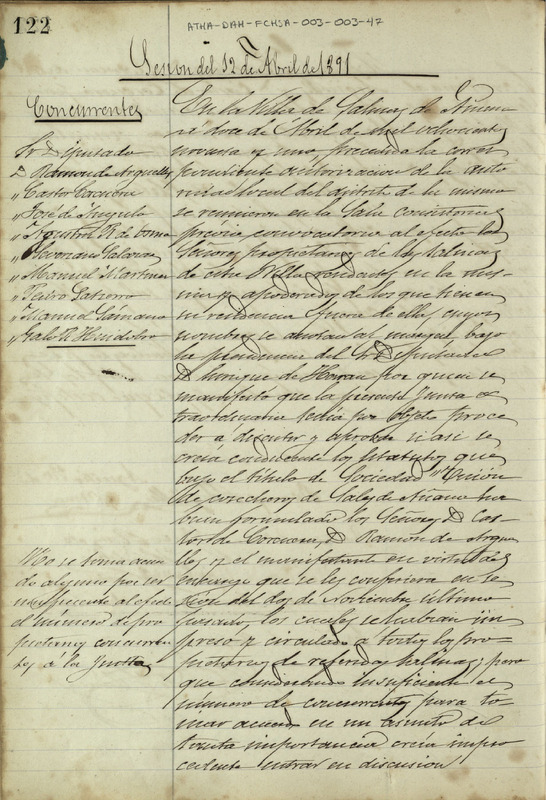 122
ATHA-DAH-FCHSA-003-003-47
Sesion del 12 de Abril de 1891
Concurrentes
Sr Diputado
D Ramon de Arguelles
" Castor Corcuera
" José de Angulo
" Manuel Martinez
" Pedro
" Manuel
En la Villa de Salinas de Añana
a doce de Abril de mil ochocientos
noventa y uno, precedida la corres
pondiente autorizacion de la auto
ridad local del distrito de la misma
se reunieron en la Sala consistorial
previa convocatoria al efecto los
Señores propietarios de las Salinas
de esta Villa residentes en la mis-
ma y apoderados de los que tienen
su residencia fuera de ella, cuyos
nombres se anotan al margen, bajo
la presidencia del Sr Diputado
D Enrique de por quien se
manifestó que la presente Junta es
traordinaria tenia por objeto proce
der á discutir y aprobar si asi se
creia conducente los Estatutos que
bajo el titulo de Sociedad "Union
de cosecheros de Sales de Añana" ha
bian formulado los Señores D Cas
tor de Corcuera, D Ramón de Argue
lles y el manifestante en virtud del
encargo que se les confiriera en se
sion del dos de Noviembre último
pasado, los cuales se habian im
preso y circulado a todos los pro
pietarios de referidas Salinas; pero
que considerando insuficiente el
número de concurrentes para to
mar acuerdo en un asunto de
tanta importancia creia impro
cedente entrar en discusion
No se toma acuer
do alguno por ser
insuficiente al efecto
el número de pro
pietarios concurren
tes a la Junta